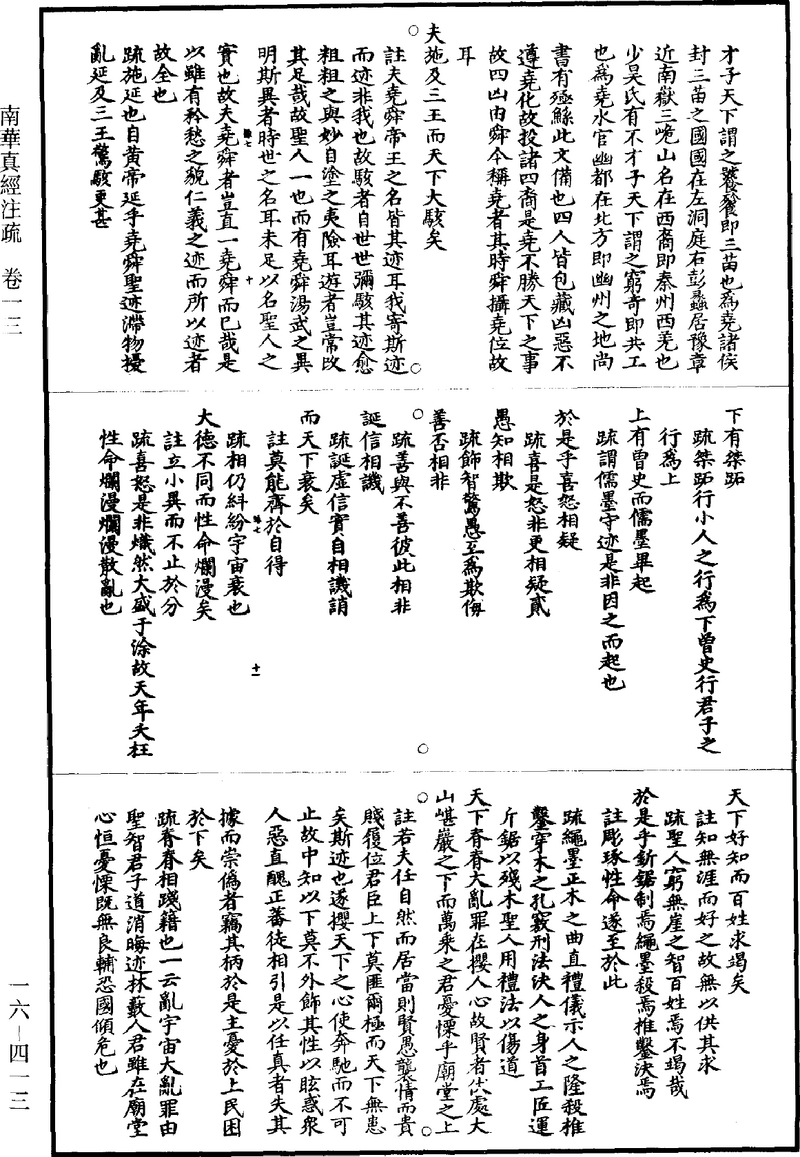 才子天下謂之饕餮即三苗也為堯諸侯
封三苗之國國在左洞庭右彭蠡居豫章
近南嶽三峗山名在西裔即秦州西羌也
少昊氏有不才子天下謂之窮奇即共工
也為堯水官幽都在北方即幽州之地尚
書有殛鯀此文備也四人皆包藏凶惡不
遵堯化故投諸四裔是堯不勝天下之事
故四凶由舜今稱堯者其時舜攝堯位故
耳
夫施及三王而天下大駭矣
註夫堯舜帝王之名皆其迹耳我寄斯迹
而迹非我也故駭者自世世彌駭其迹愈
粗粗之與妙自塗之夷險耳遊者豈常改
其足哉故聖人一也而有堯舜湯武之異
明斯異者時世之名耳未足以名聖人之
實也故夫堯舜者豈直一堯舜而已哉是
以雖有矜愁之貌仁義之迹而所以迹者
故全也
疏施延也自黃帝延乎堯舜聖迹滯物擾
亂延及三王驚駭更甚
下有桀跖
疏桀跖行小人之行為下曾史行君子之
行為上
上有曾史而儒墨畢起
疏謂儒墨守迹是非因之而起也
於是乎喜怒相疑
疏喜是怒非更相疑貳
愚知相欺
疏飾智驚愚互為欺侮
善否相非
疏善與不善彼此相非
誕信相譏
疏誕虛信實自相譏誚
而天下衰矣
註莫能齊於自得
疏相仍糾紛宇宙衰也
大德不同而性命爛漫矣
註立小異而不止於分
疏喜怒是非熾然大盛于涂故天年夭枉
性命爛漫爛漫散亂也
天下好知而百姓求竭矣
註知無涯而好之故無以供其求
疏聖人窮無崖之智百姓焉不竭哉
於是乎釿鋸制焉繩墨殺焉椎鑿決焉
註彫琢性命遂至於此
疏繩墨正木之曲直禮儀示人之隆殺椎
鑿穿木之孔竅刑法決人之身首工匠運
斤鋸以殘木聖人用禮法以傷道
天下脊脊大亂罪在攖人心故賢者伏處大
山嵁巖之下而萬乘之君憂慄乎廟堂之上
註若夫任自然而居當則賢愚襲情而貴
賤履位君臣上下莫匪爾極而天下無患
矣斯迹也遂攖天下之心使奔馳而不可
止故中知以下莫不外飾其性以眩惑眾
人惡直醜正蕃徒相引是以任真者失其
據而崇偽者竊其柄於是主憂於上民困
於下矣
疏脊脊相踐籍也一云亂宇宙大亂罪由
聖智君子道消晦迹林藪人君雖在廟堂
心恒憂慄既無良輔恐國傾危也
南華真經注疏 卷一三
一六—四一三
十
十一